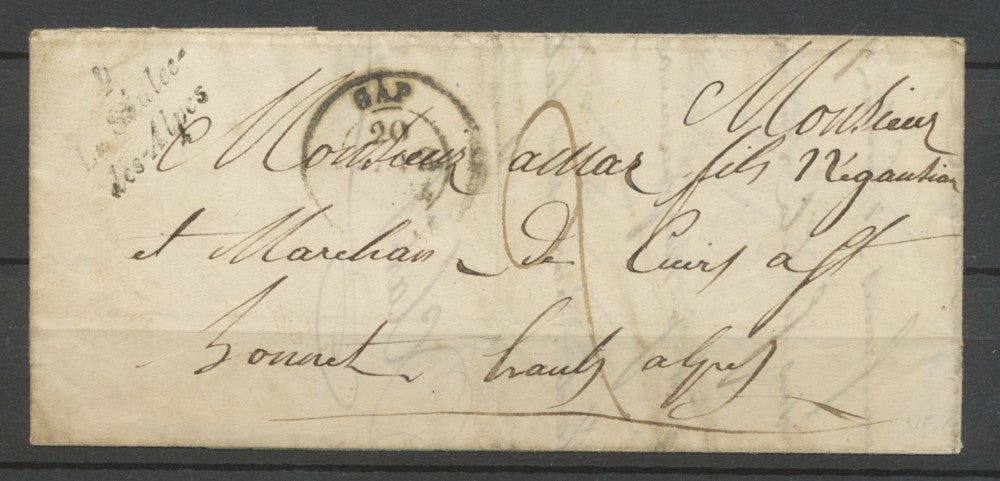 4
La Saulce-
des-Alpes
GAP
20
2
Monsieur
Monsieur amar fils Négautian
et Marchan de Cuirs a St
bonnet hauts alpes